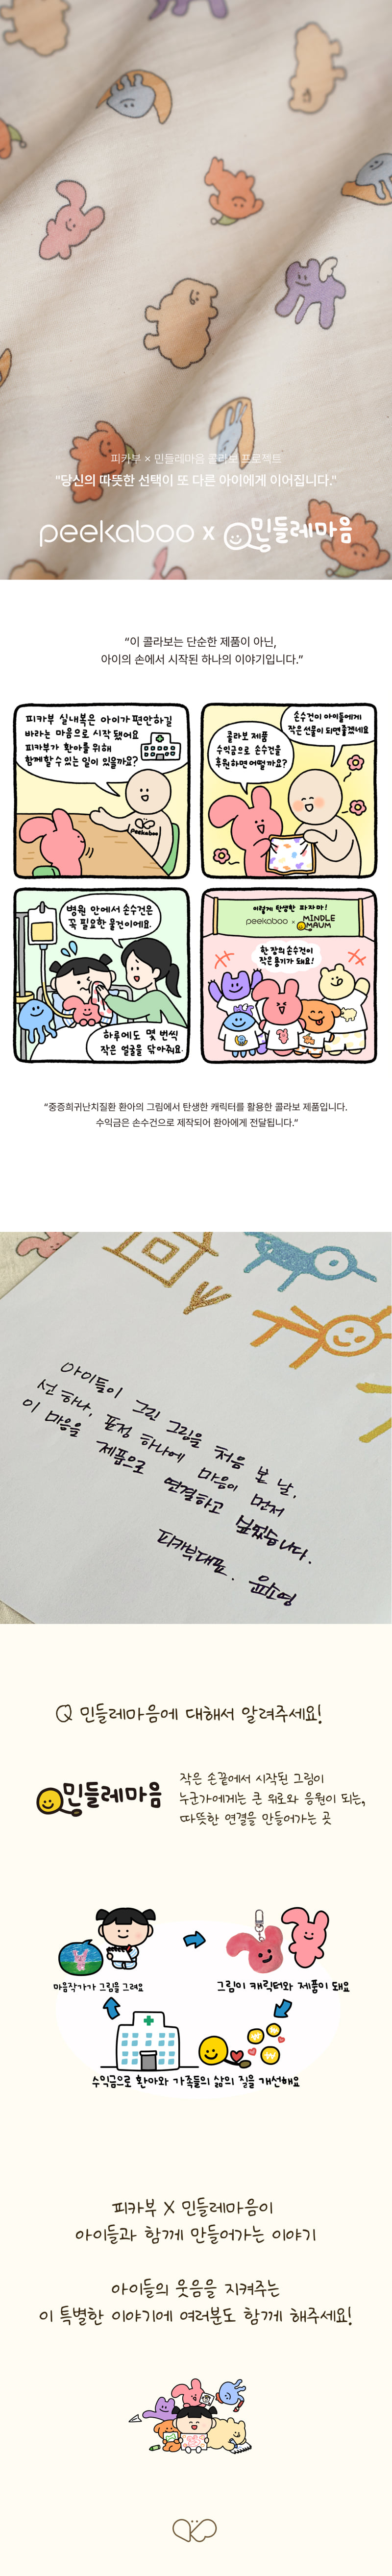 피카부 × 민들레마음 콜라보 프로젝트
"당신의 따뜻한 선택이 또 다른 아이에게 이어집니다."
peekaboo x 민들레마음
“이 콜라보는 단순한 제품이 아닌,
아이의 손에서 시작된 하나의 이야기입니다.”
피카부 실내복은 아이가 편안하길
바라는 마음으로 시작 됐어요
피카부가 환아를 위해
함께할 수 있는 일이 있을까요?
peekaboo
콜라보 제품
수익금으로 손수건을
후원하면 어떨까요?
손수건이 아이들에게
작은선물이 되면좋겠네요
병원 안에서 손수건은
꼭 필요한 물건이에요.
하루에도 몇 번씩
작은 얼굴을 닦아줘요.
이렇게 탄생한 파자마!
peekaboo × MINDLE MAUM
한 장의 손수건이
작은용기가 돼요!
“중증희귀난치질환 환아의 그림에서 탄생한 캐릭터를 활용한 콜라보 제품입니다.
수익금은 손수건으로 제작되어 환아에게 전달됩니다.”
아이들이 그린 그림을 처음 본 날,
선 하나, 표정 하나에 마음이 먼저
이 마음을 제품으로 연결하고 싶었습니다.
피카부대표. 윤소영
Q 민들레마음에 대해서 알려주세요!
민들레마음
작은 손끝에서 시작된 그림이
누군가에게는 큰 위로와 응원이 되는,
따뜻한 연결을 만들어가는 곳
마음작가가 그림을 그려요
그림이 캐릭터와 제품이 돼요
수익금으로 환아와 가족들의 삶의 질을 개선해요
피카부 X 민들레마음이
아이들과 함께 만들어가는 이야기
아이들의 웃음을 지켜주는
이 특별한 이야기에 여러분도 함께 해주세요!